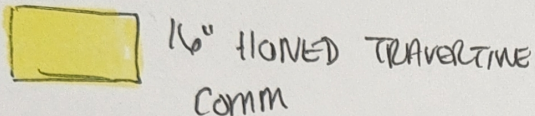 16" HONED TRAVERTINE
COMM